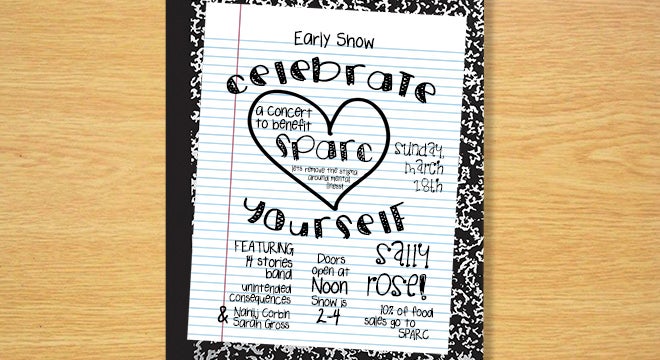 Early Show
celebrate
a concert
to benefit
sparc
lets remove the stigma
around mental
illness!
sunday,
march
18th
yourself
FEATURING
14 stories
band
unintended
consequences
& Nanly Corbin
Sarah Gross
Doors
open at
Noon
Show is
2-4
sally
rose!
10% of food
sales go to
SPARC